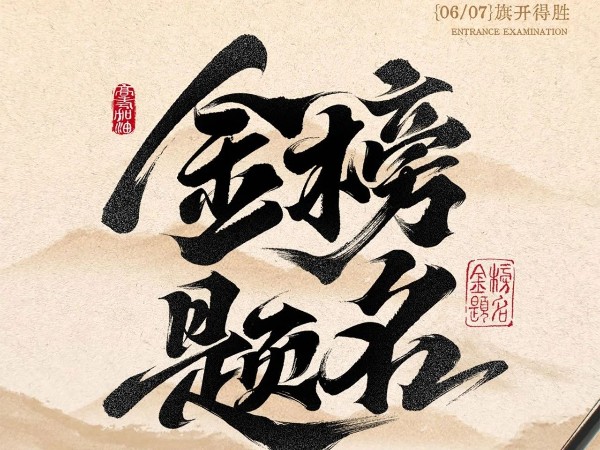 {06/07}旗开得胜
ENTRANCE EXAMINATION
高考加油
金榜
题名
金榜
題名